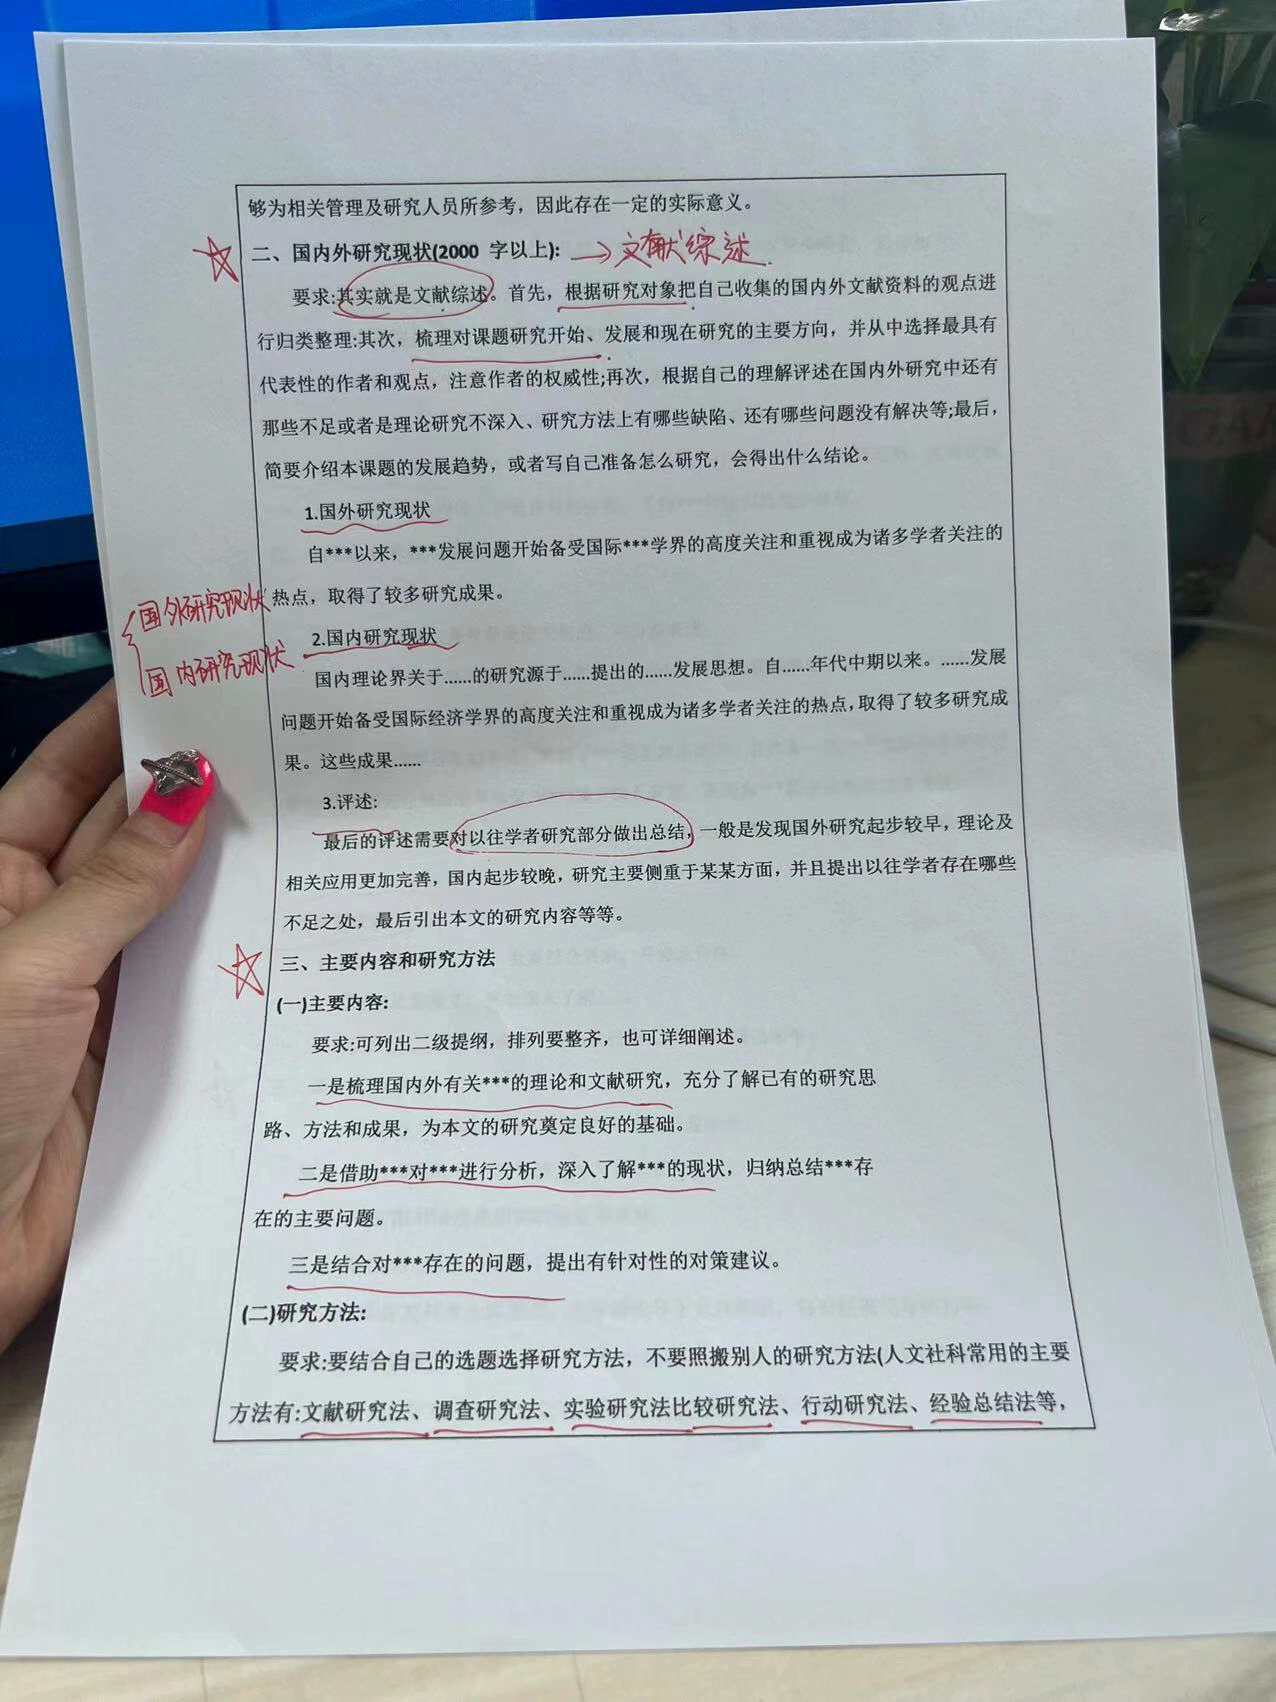 够为相关管理及研究人员所参考，因此存在一定的实际意义。
二、国内外研究现状(2000 字以上): →文献综述
要求:其实就是文献综述。首先，根据研究对象把自己收集的国内外文献资料的观点进
行归类整理:其次，梳理对课题研究开始、发展和现在研究的主要方向，并从中选择最具有
代表性的作者和观点，注意作者的权威性;再次，根据自己的理解评述在国内外研究中还有
那些不足或者是理论研究不深入、研究方法上有哪些缺陷、还有哪些问题没有解决等;最后，
简要介绍本课题的发展趋势，或者写自己准备怎么研究，会得出什么结论。
1.国外研究现状
自***以来，***发展问题开始备受国际***学界的高度关注和重视成为诸多学者关注的
热点，取得了较多研究成果。
国外研究现状
2.国内研究现状
国内研究现状
国内理论界关于......的研究源于......提出的......发展思想。自......年代中期以来。......发展
问题开始备受国际经济学界的高度关注和重视成为诸多学者关注的热点，取得了较多研究成
果。这些成果......
3.评述:
最后的评述需要对以往学者研究部分做出总结，一般是发现国外研究起步较早，理论及
相关应用更加完善，国内起步较晚，研究主要侧重于某某方面，并且提出以往学者存在哪些
不足之处，最后引出本文的研究内容等等。
三、主要内容和研究方法
(一)主要内容:
要求:可列出二级提纲，排列要整齐，也可详细阐述。
一是梳理国内外有关***的理论和文献研究，充分了解已有的研究思
路、方法和成果，为本文的研究奠定良好的基础。
二是借助***对***进行分析，深入了解***的现状，归纳总结***存
在的主要问题。
三是结合对***存在的问题，提出有针对性的对策建议。
(二)研究方法:
要求:要结合自己的选题选择研究方法，不要照搬别人的研究方法(人文社科常用的主要
方法有:文献研究法、调查研究法、实验研究法比较研究法、行动研究法、经验总结法等，